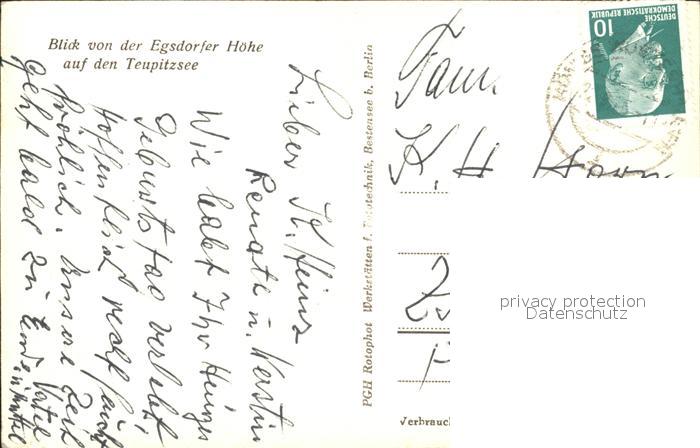 Blick von der Egsdorfer Höhe
auf den Teupitzsee
Lieber K. Heinz
Renate u. Kerstin
Wie habt Ihr Heinzes
Geburtstag verlebt
Hoffentlich recht
fröhlich. Unsere Zeit
geht bald zu Ende
PGH Rotophot Werkstätten f. Fototechnik, Bestensee b. Berlin
DEUTSCHE
DEMOKRATISCHE REPUBLIK
10
Fam.
K. H.
privacy protection
Datenschutz
Verbrauc